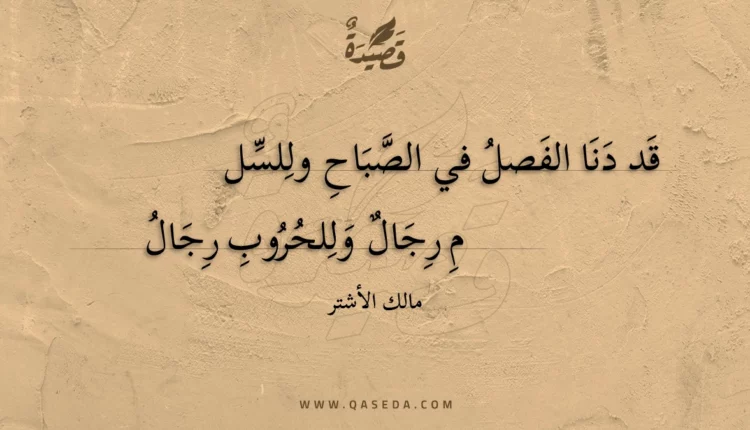 قَصِيْدَةٌ
قَد دَنَا الفَصلُ في الصَّبَاحِ ولِلسِّل
مِ رِجَالٌ وَلِلحُرُوبِ رِجَالُ
مالك الأشتر
WWW.QASEDA.COM